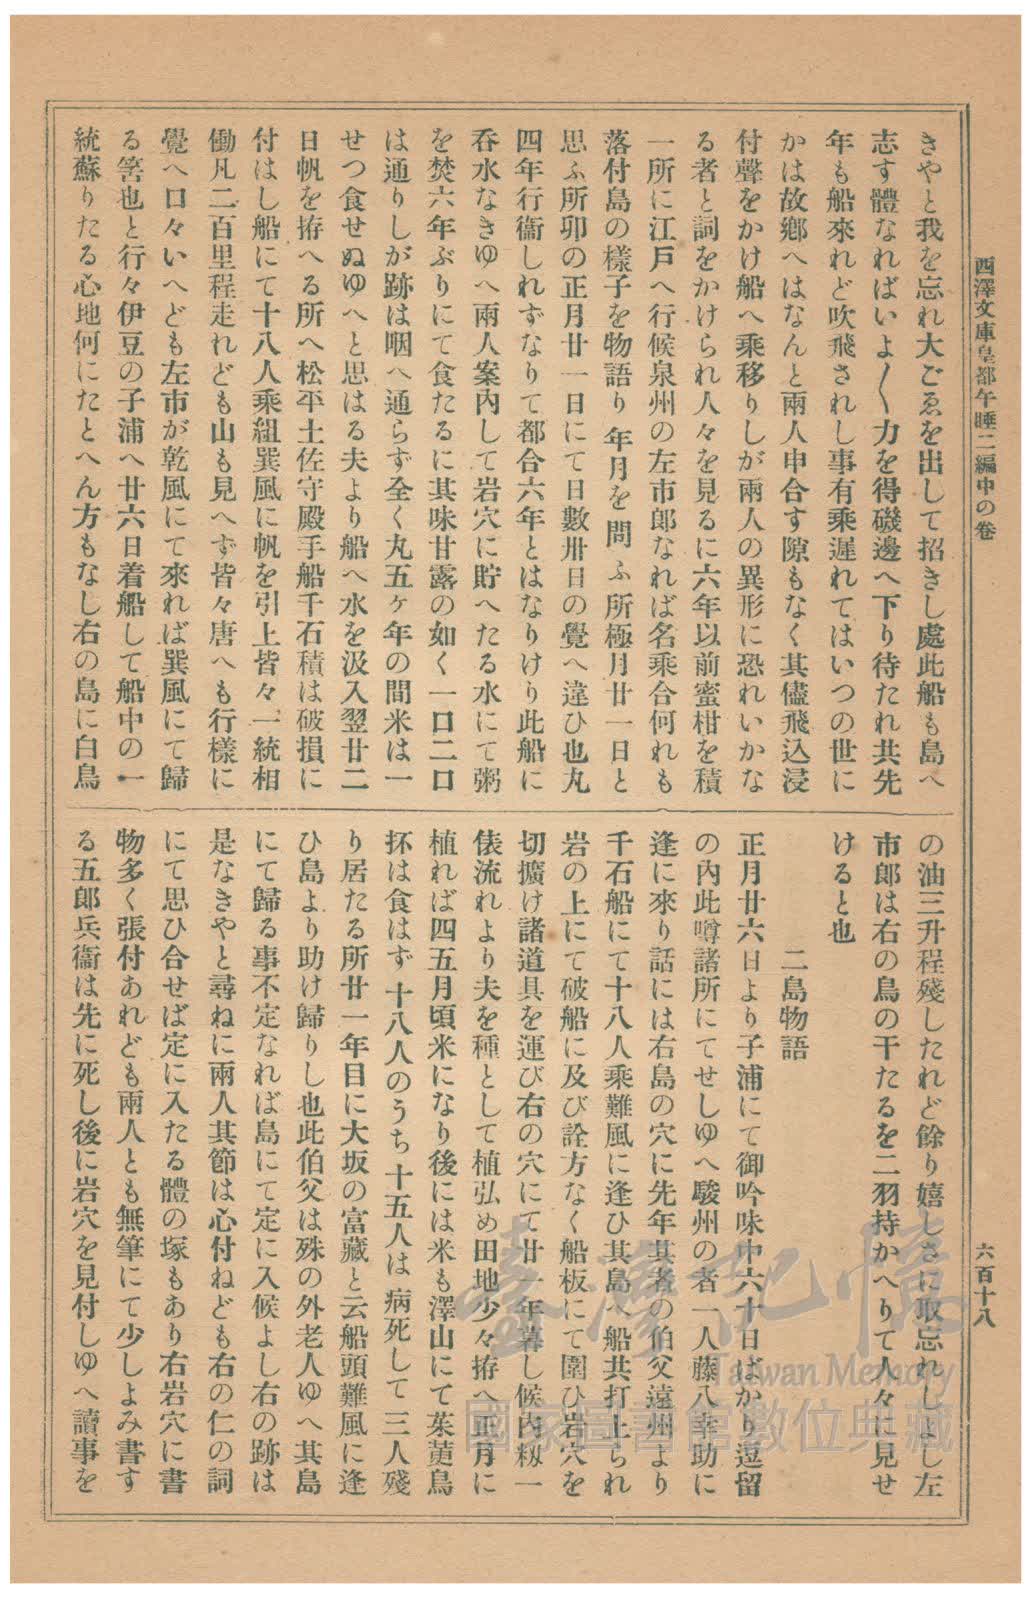 西澤文庫皇都午睡二編中の卷
六百十八
きやと我を忘れ大ごゑを出して招きし處此船も島へ
志す體なればいよ〳〵力を得磯邊へ下り待たれ共先
年も船來れど吹飛されし事有乘遲れてはいつの世に
かは故鄕へはなんと兩人申合す隙もなく其儘飛込浸
付聲をかけ船へ乘移りしが兩人の異形に恐れいかな
る者と詞をかけられ人々を見るに六年以前蜜柑を積
一所に江戶へ行候泉州の左市郎なれば名乘合何れも
落付島の樣子を物語り年月を問ふ所極月廿一日と
思ふ所卯の正月廿一日にて日數卅日の覺へ違ひ也丸
四年行衞しれずなりて都合六年とはなりけり此船に
呑水なきゆへ兩人案內して岩穴に貯へたる水にて粥
を焚六年ぶりにて食たるに其味甘露の如く一口二口
は通りしが跡は咽へ通らず全く丸五ヶ年の間米は一
せつ食せぬゆへと思はる夫より船へ水を汲入翌廿二
日帆を拵へる所へ松平土佐守殿手船千石積は破損に
付はし船にて十八人乘組巽風に帆を引上皆々一統相
働凡二百里程走れども山も見へず皆々唐へも行樣に
覺へ口々いへども左市が乾風にて來れば巽風にて歸
る筈也と行々伊豆の子浦へ廿六日着船して船中の一
統蘇りたる心地何にたとへん方もなし右の島に白鳥
の油三升程殘したれど餘り嬉しさに取忘れしよし左
市郎は右の鳥の干たるを二羽持かへりて人々に見せ
けると也
二島物語
正月廿六日より子浦にて御吟味中六十日ばかり逗留
の內此噂諸所にてせしゆへ駿州の者一人藤八幸助に
逢に來り話には右島の穴に先年其者の伯父遠州より
千石船にて十八人乘難風に逢ひ其島へ船共打上られ
岩の上にて破船に及び詮方なく船板にて圍ひ岩穴を
切擴け諸道具を運び右の穴にて廿一年暮し候內籾一
俵流れより夫を種として植弘め田地少々拵へ正月に
植れば四五月頃米になり後には米も澤山にて茱萸鳥
抔は食はず十八人のうち十五人は病死して三人殘
り居たる所廿一年目に大坂の富藏と云船頭難風に逢
ひ島より助け歸りし也此伯父は殊の外老人ゆへ其島
にて歸る事不定なれば島にて定に入候よし右の跡は
是なきやと尋ねに兩人其節は心付ねども右の仁の詞
にて思ひ合せば定に入たる體の塚もあり右岩穴に書
物多く張付あれども兩人とも無筆にて少しよみ書す
る五郎兵衞は先に死し後に岩穴を見付しゆへ讀事を
臺灣記憶
Taiwan Memory
國家圖書館數位典藏